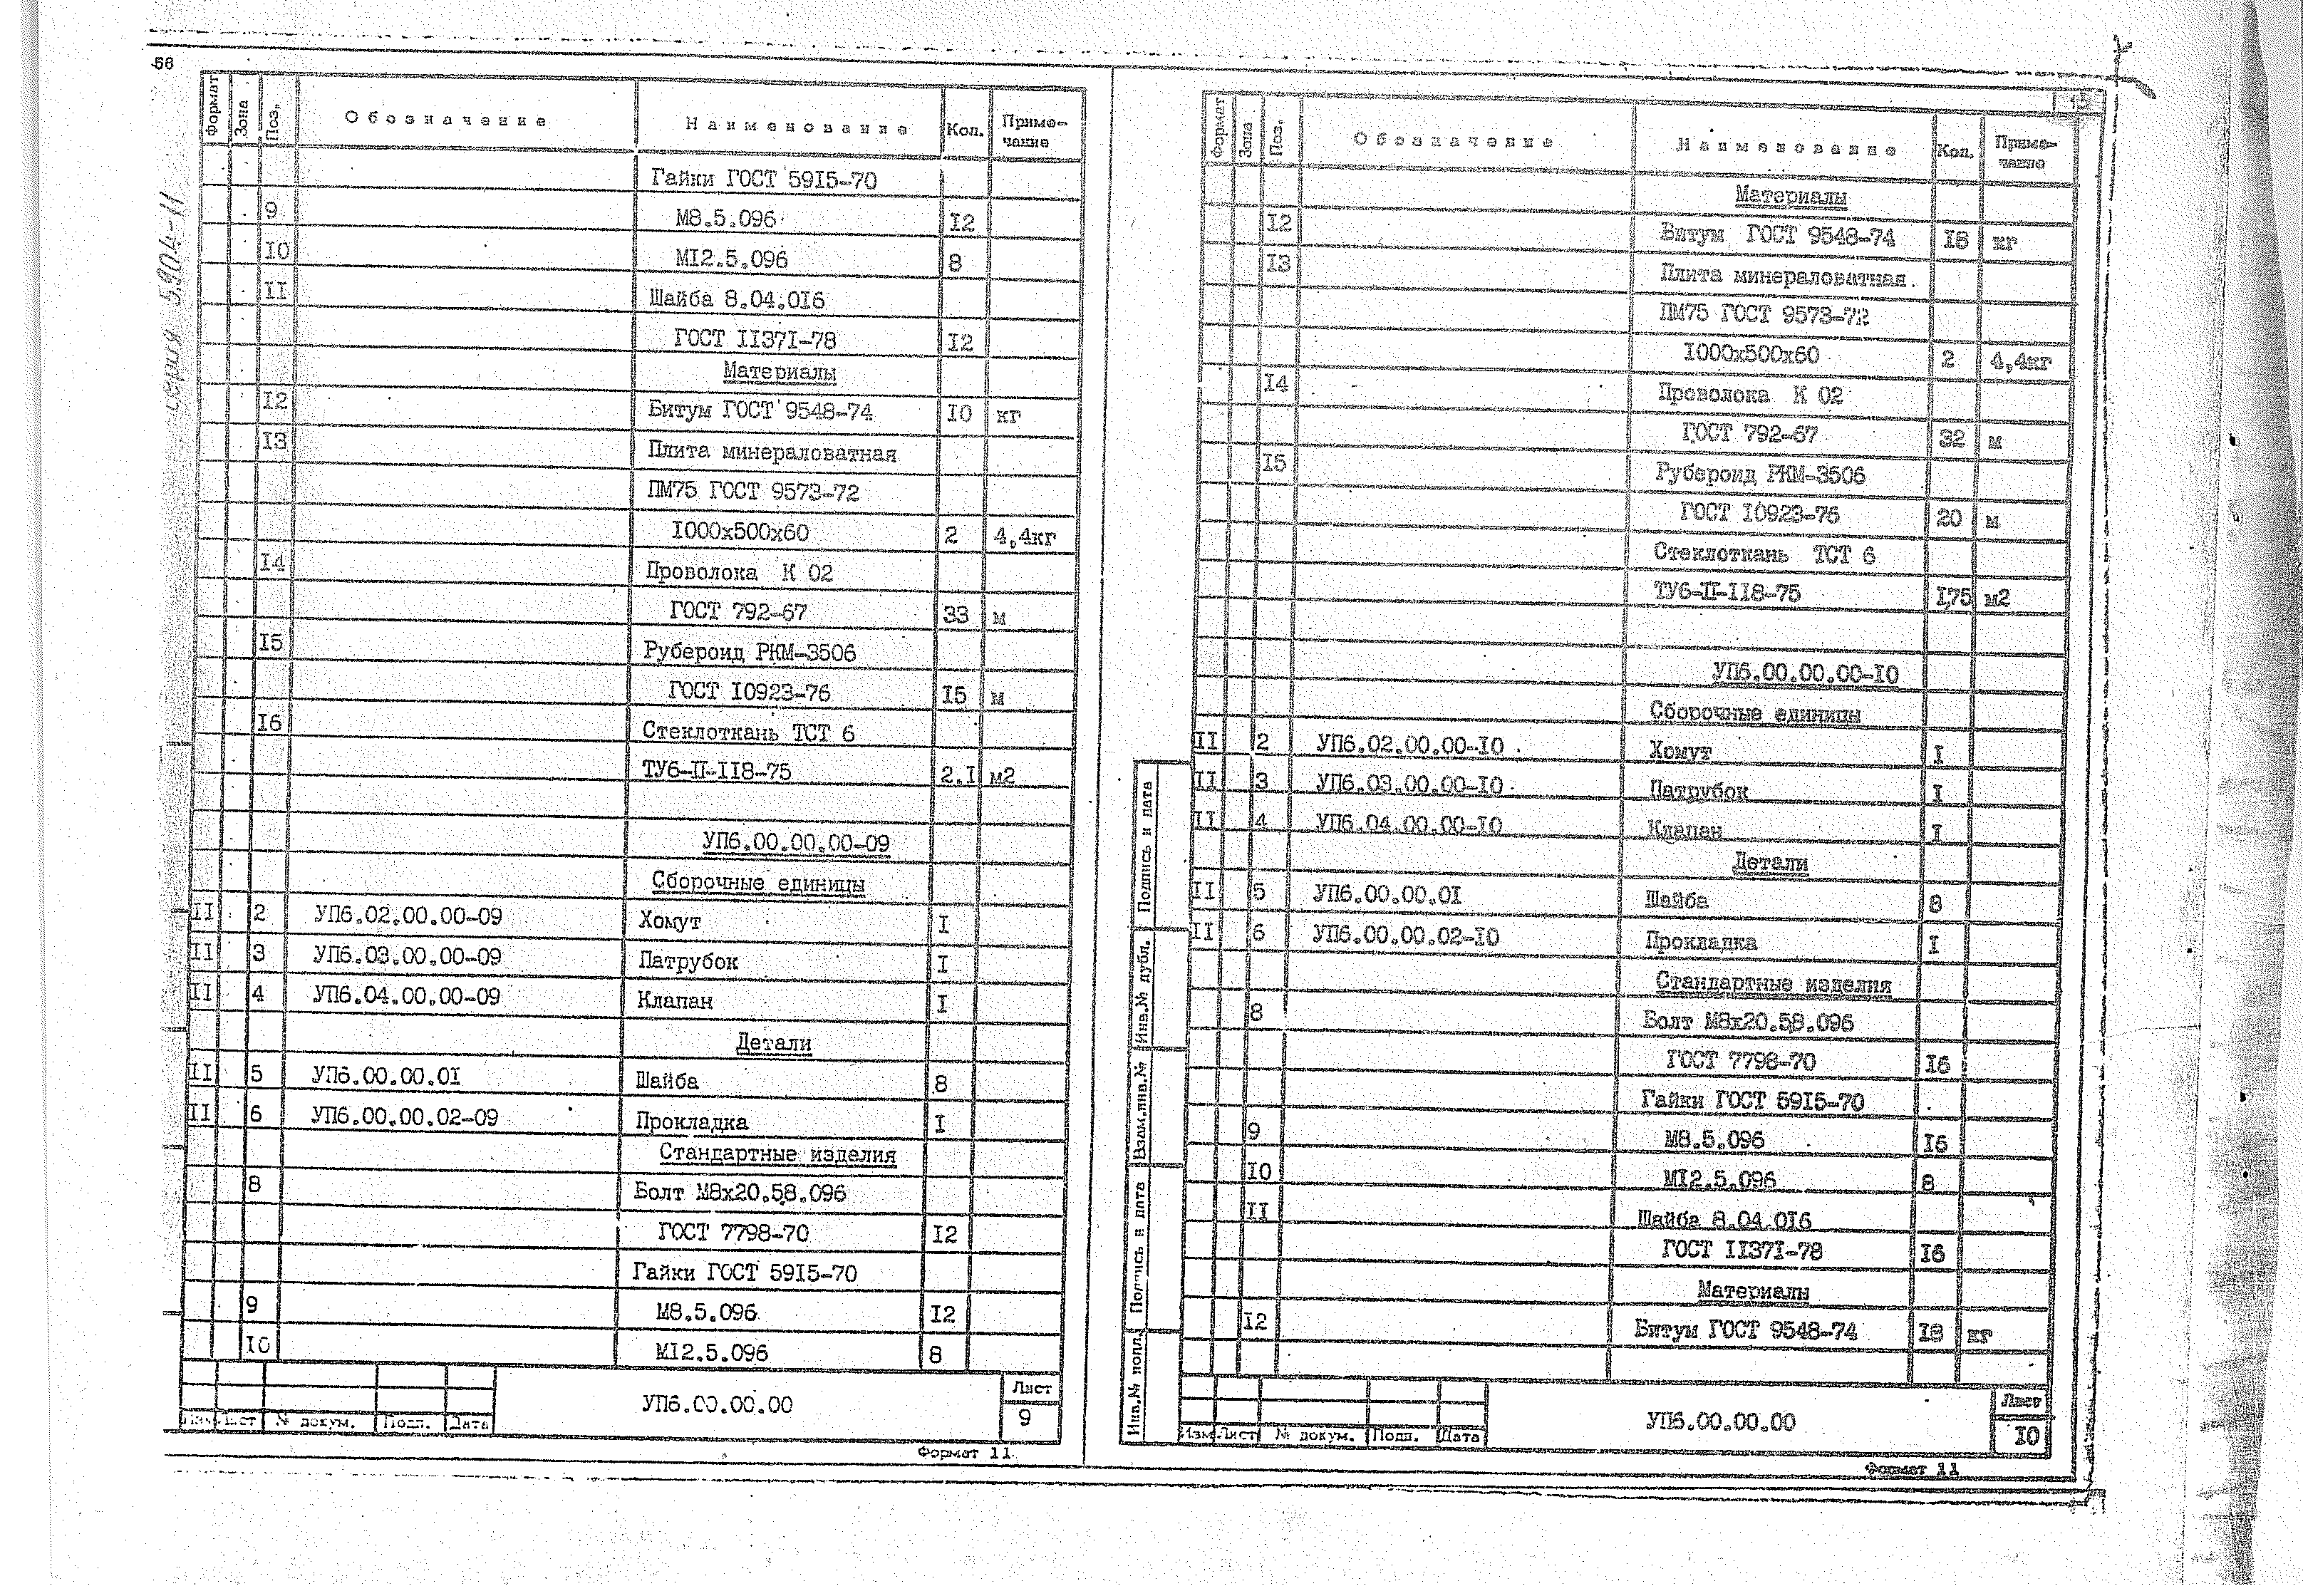 56
серия 5.904-11
Формат Зона Поз. Обозначение Наименование Кол. Приме-чание
Гайки ГОСТ 5915-70
9 М8.5.096 12
10 М12.5.096 8
11 Шайба 8.04.016
ГОСТ 11371-78 12
Материалы
12 Битум ГОСТ 9548-74 10 кг
13 Плита минераловатная
ПМ75 ГОСТ 9573-72
1000х500х60 2 4,4кг
14 Проволока К 02
ГОСТ 792-67 33 м
15 Рубероид РКМ-350б
ГОСТ 10923-76 15 м
16 Стеклоткань ТСТ 6
ТУ6-11-118-75 2.1 м2
УП6.00.00.00-09
Сборочные единицы
11 2 УП6.02.00.00-09 Хомут 1
11 3 УП6.03.00.00-09 Патрубок 1
11 4 УП6.04.00.00-09 Клапан 1
Детали
11 5 УП6.00.00.01 Шайба 8
11 6 УП6.00.00.02-09 Прокладка 1
Стандартные изделия
8 Болт М8х20.58.096
ГОСТ 7798-70 12
Гайки ГОСТ 5915-70
9 М8.5.096 12
10 М12.5.096 8
Изм. Лист № докум. Подп. Дата
УП6.00.00.00
Лист
9
Формат 11
13
Формат Зона Поз. Обозначение Наименование Кол. Приме-чание
Материалы
12 Битум ГОСТ 9548-74 16 кг
13 Плита минераловатная
ПМ75 ГОСТ 9573-72
1000х500х60 2 4,4кг
14 Проволока К 02
ГОСТ 792-67 32 м
15 Рубероид РКМ-350б
ГОСТ 10923-76 20 м
Стеклоткань ТСТ 6
ТУ6-11-118-75 1,75 м2
УП6.00.00.00-10
Сборочные единицы
11 2 УП6.02.00.00-10 Хомут 1
11 3 УП6.03.00.00-10 Патрубок 1
11 4 УП6.04.00.00-10 Клапан 1
Детали
11 5 УП6.00.00.01 Шайба 8
11 6 УП6.00.00.02-10 Прокладка 1
Стандартные изделия
8 Болт М8х20.58.096
ГОСТ 7798-70 16
Гайки ГОСТ 5915-70
9 М8.5.096 16
10 М12.5.096 8
11 Шайба 8.04.016
ГОСТ 11371-78 16
Материалы
12 Битум ГОСТ 9548-74 18 кг
Подпись и дата
Инв.№ дубл.
Взам.инв.№
Подпись и дата
Инв.№ подл.
Изм. Лист № докум. Подп. Дата
УП6.00.00.00
Лист
10
Формат 11